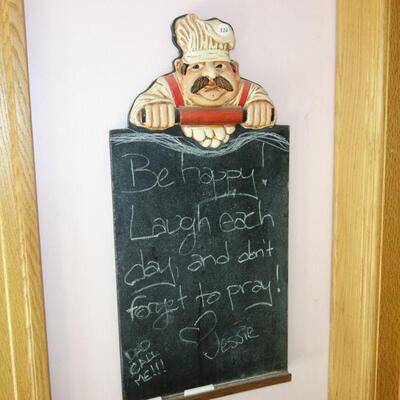 Be happy!
Laugh each
day, and don't
forget to pray!
♡ Jessie
DAD
CALL
ME!!!